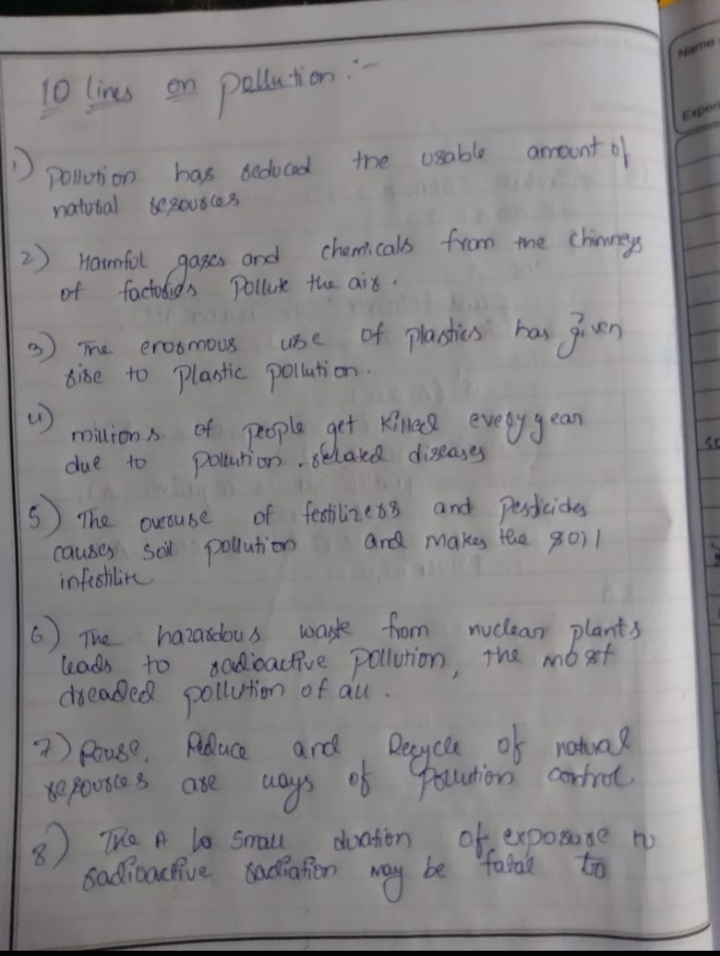 10 lines on pollution :-
1) Pollution has reduced the usable amount of
natural resources.
2) Harmful gases and chemicals from the chimneys
of factories Pollute the air.
3) The enormous use of plastics has given
rise to Plastic pollution.
4) millions of people get killed every year
due to pollution. related diseases
5) The overuse of fertilizers and Pesticides
causes soil pollution and makes the soil
infertile
6) The hazardous waste from nuclear plants
leads to radioactive pollution, the most
dreaded pollution of all.
7) Reuse, Reduce and Recycle of natural
resources are ways of Pollution control.
8) The A small duration of exposure to
radioactive radiation may be fatal to
Name
Exper